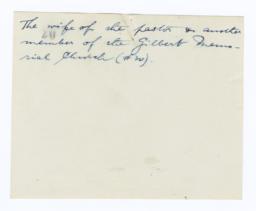 The wife of the pastor & another
member of the Gilbert Memo-
rial Church (